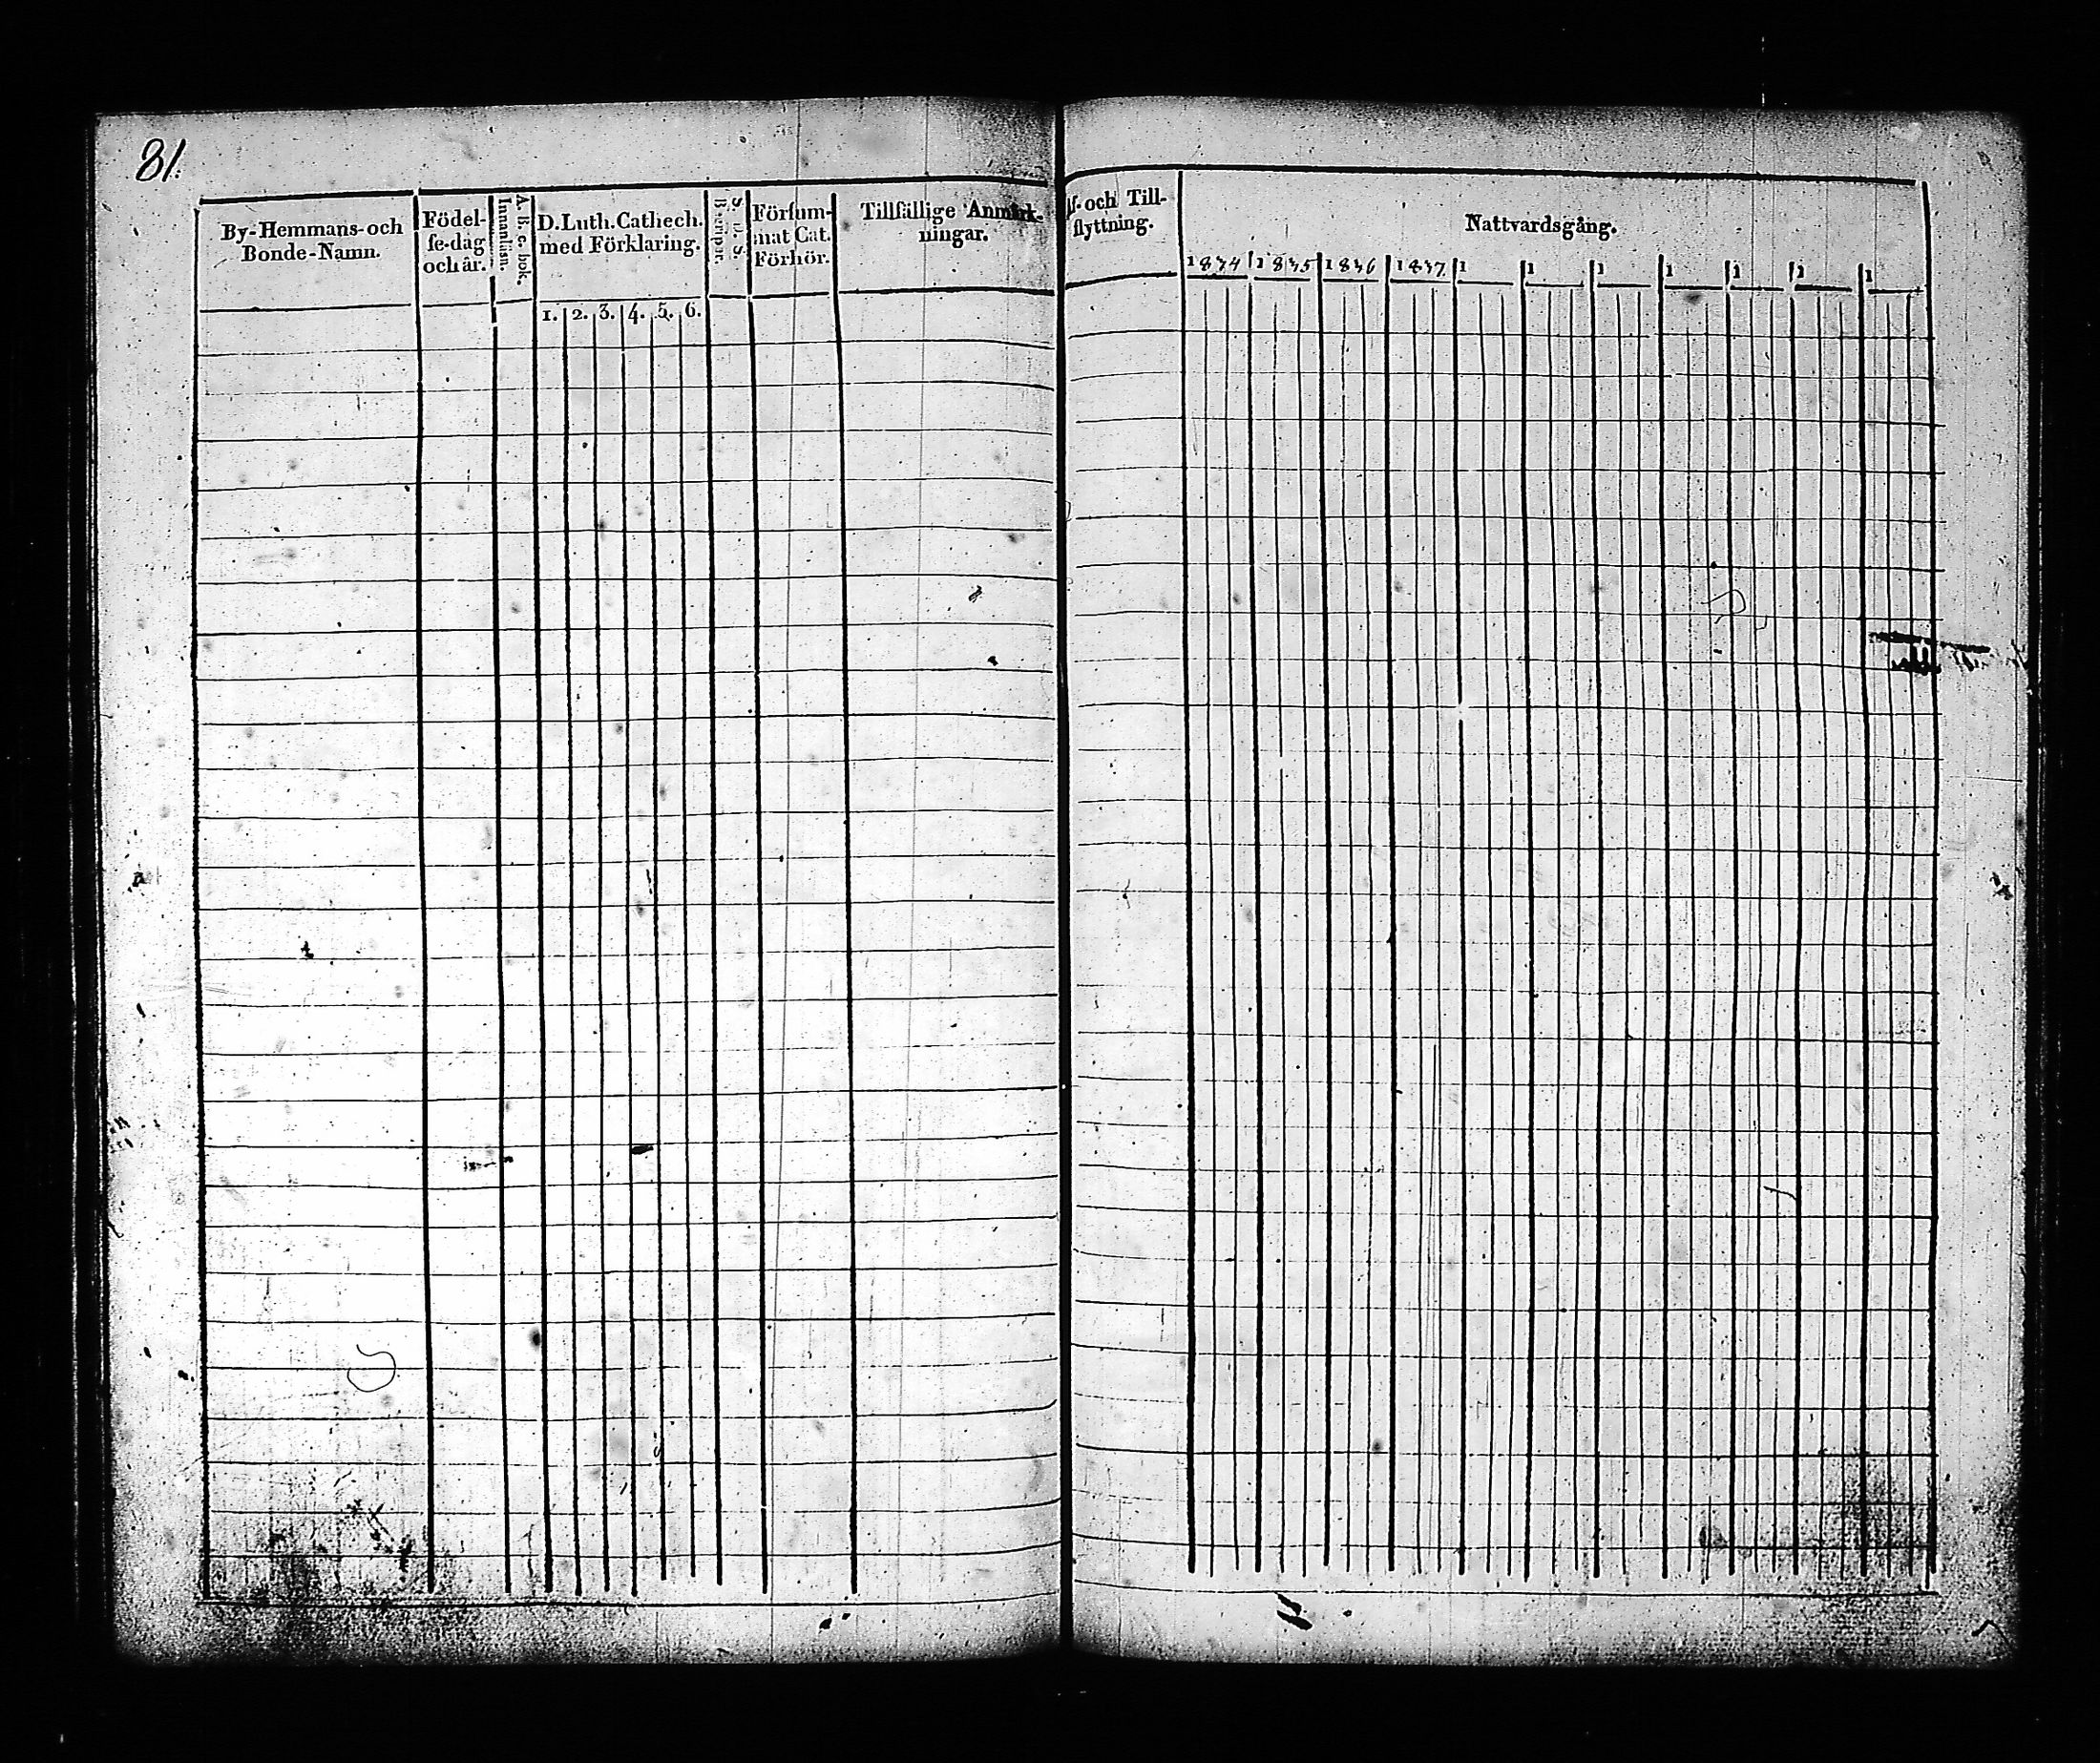 81.
By-Hemmans-och
Bonde-Namn.
Födel-
se-dag
och år.
A. B. c. bok.
Innanläsn.
D. Luth. Cathech.
med Förklaring.
1. 2. 3. 4. 5. 6.
S. d. S.
Försum-
mat Cat.
Förhör.
Tillfällige Anmärk-
ningar.
Af- och Till-
flyttning.
Nattvardsgång.
1834 1835 1836 1837 1 1 1 1 1 1 1